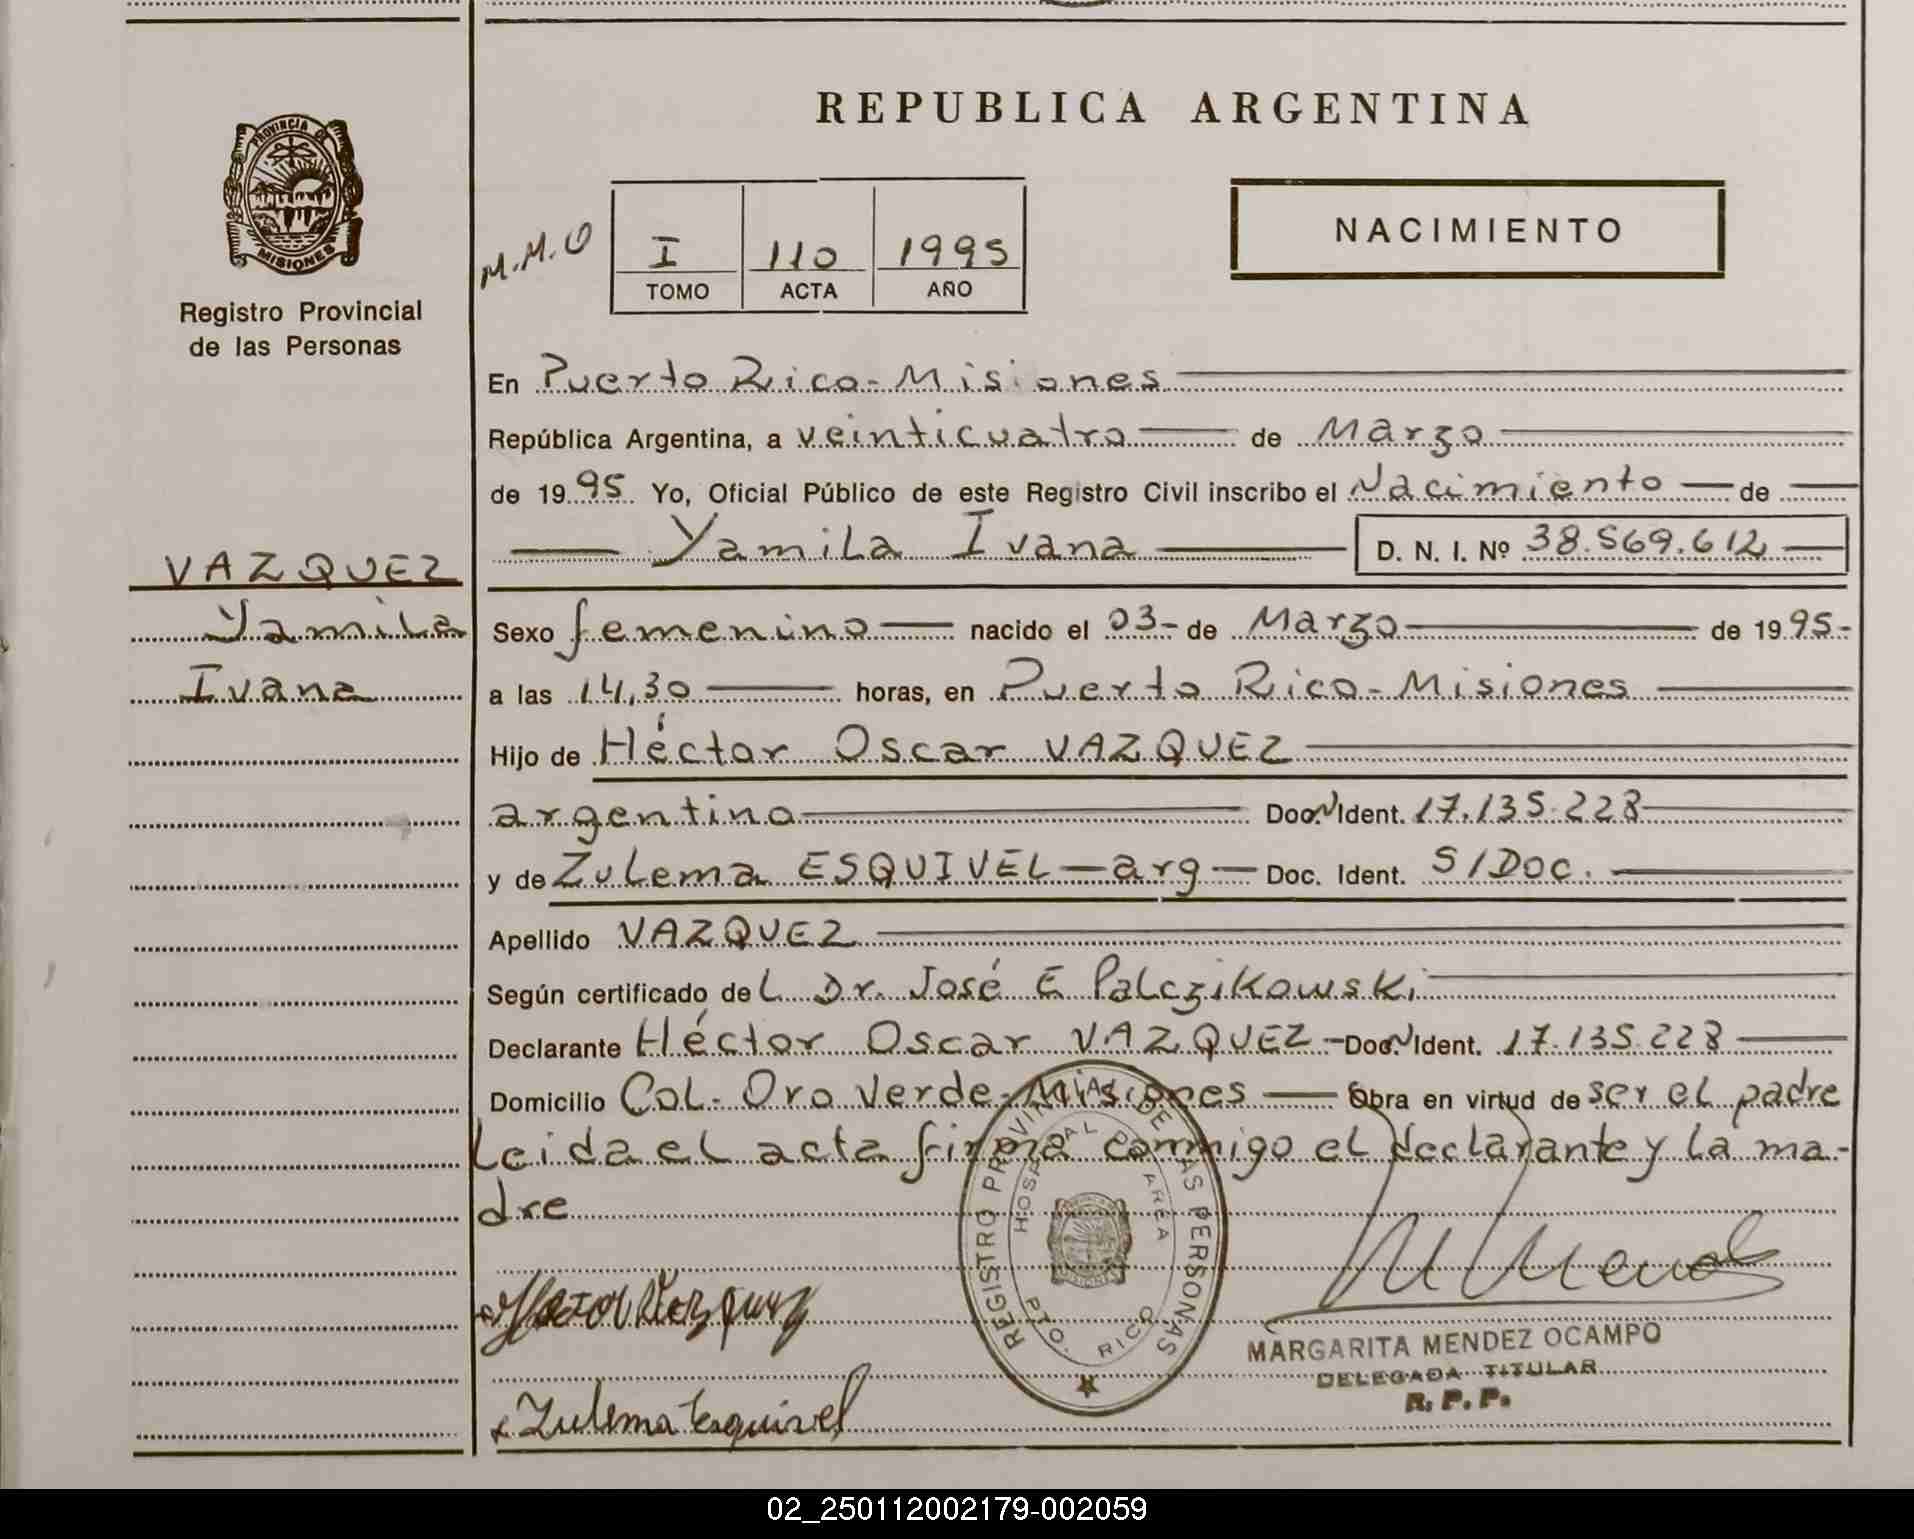 REPUBLICA ARGENTINA
PROVINCIA DE
MISIONES
Registro Provincial
de las Personas
M.M.O
I 110 1995
TOMO ACTA AÑO
NACIMIENTO
En Puerto Rico - Misiones
República Argentina, a veinticuatro de Marzo
de 1995 Yo, Oficial Público de este Registro Civil inscribo el Nacimiento de
Yamila Ivana D. N. I. Nº 38.569.612
VAZQUEZ
Yamila
Ivana
Sexo femenino nacido el 03- de Marzo de 1995-
a las 14,30 horas, en Puerto Rico - Misiones
Hijo de Héctor Oscar VAZQUEZ
argentino Doc. Ident. 17.135.228
y de Zulema ESQUIVEL - arg - Doc. Ident. S/DOC.
Apellido VAZQUEZ
Según certificado del Dr. José E Palczikowski
Declarante Héctor Oscar VAZQUEZ - Doc. Ident. 17.135.228
Domicilio Col. Oro Verde - Misiones Obra en virtud de ser el padre
Leida el acta firma conmigo el declarante y la ma-
dre
REGISTRO PROVINCIAL DE LAS PERSONAS
HOSPITAL DE AREA
PTO. RICO
Zulema Esquivel
MARGARITA MENDEZ OCAMPO
DELEGADA TITULAR
R. P. P.
02_250112002179-002059